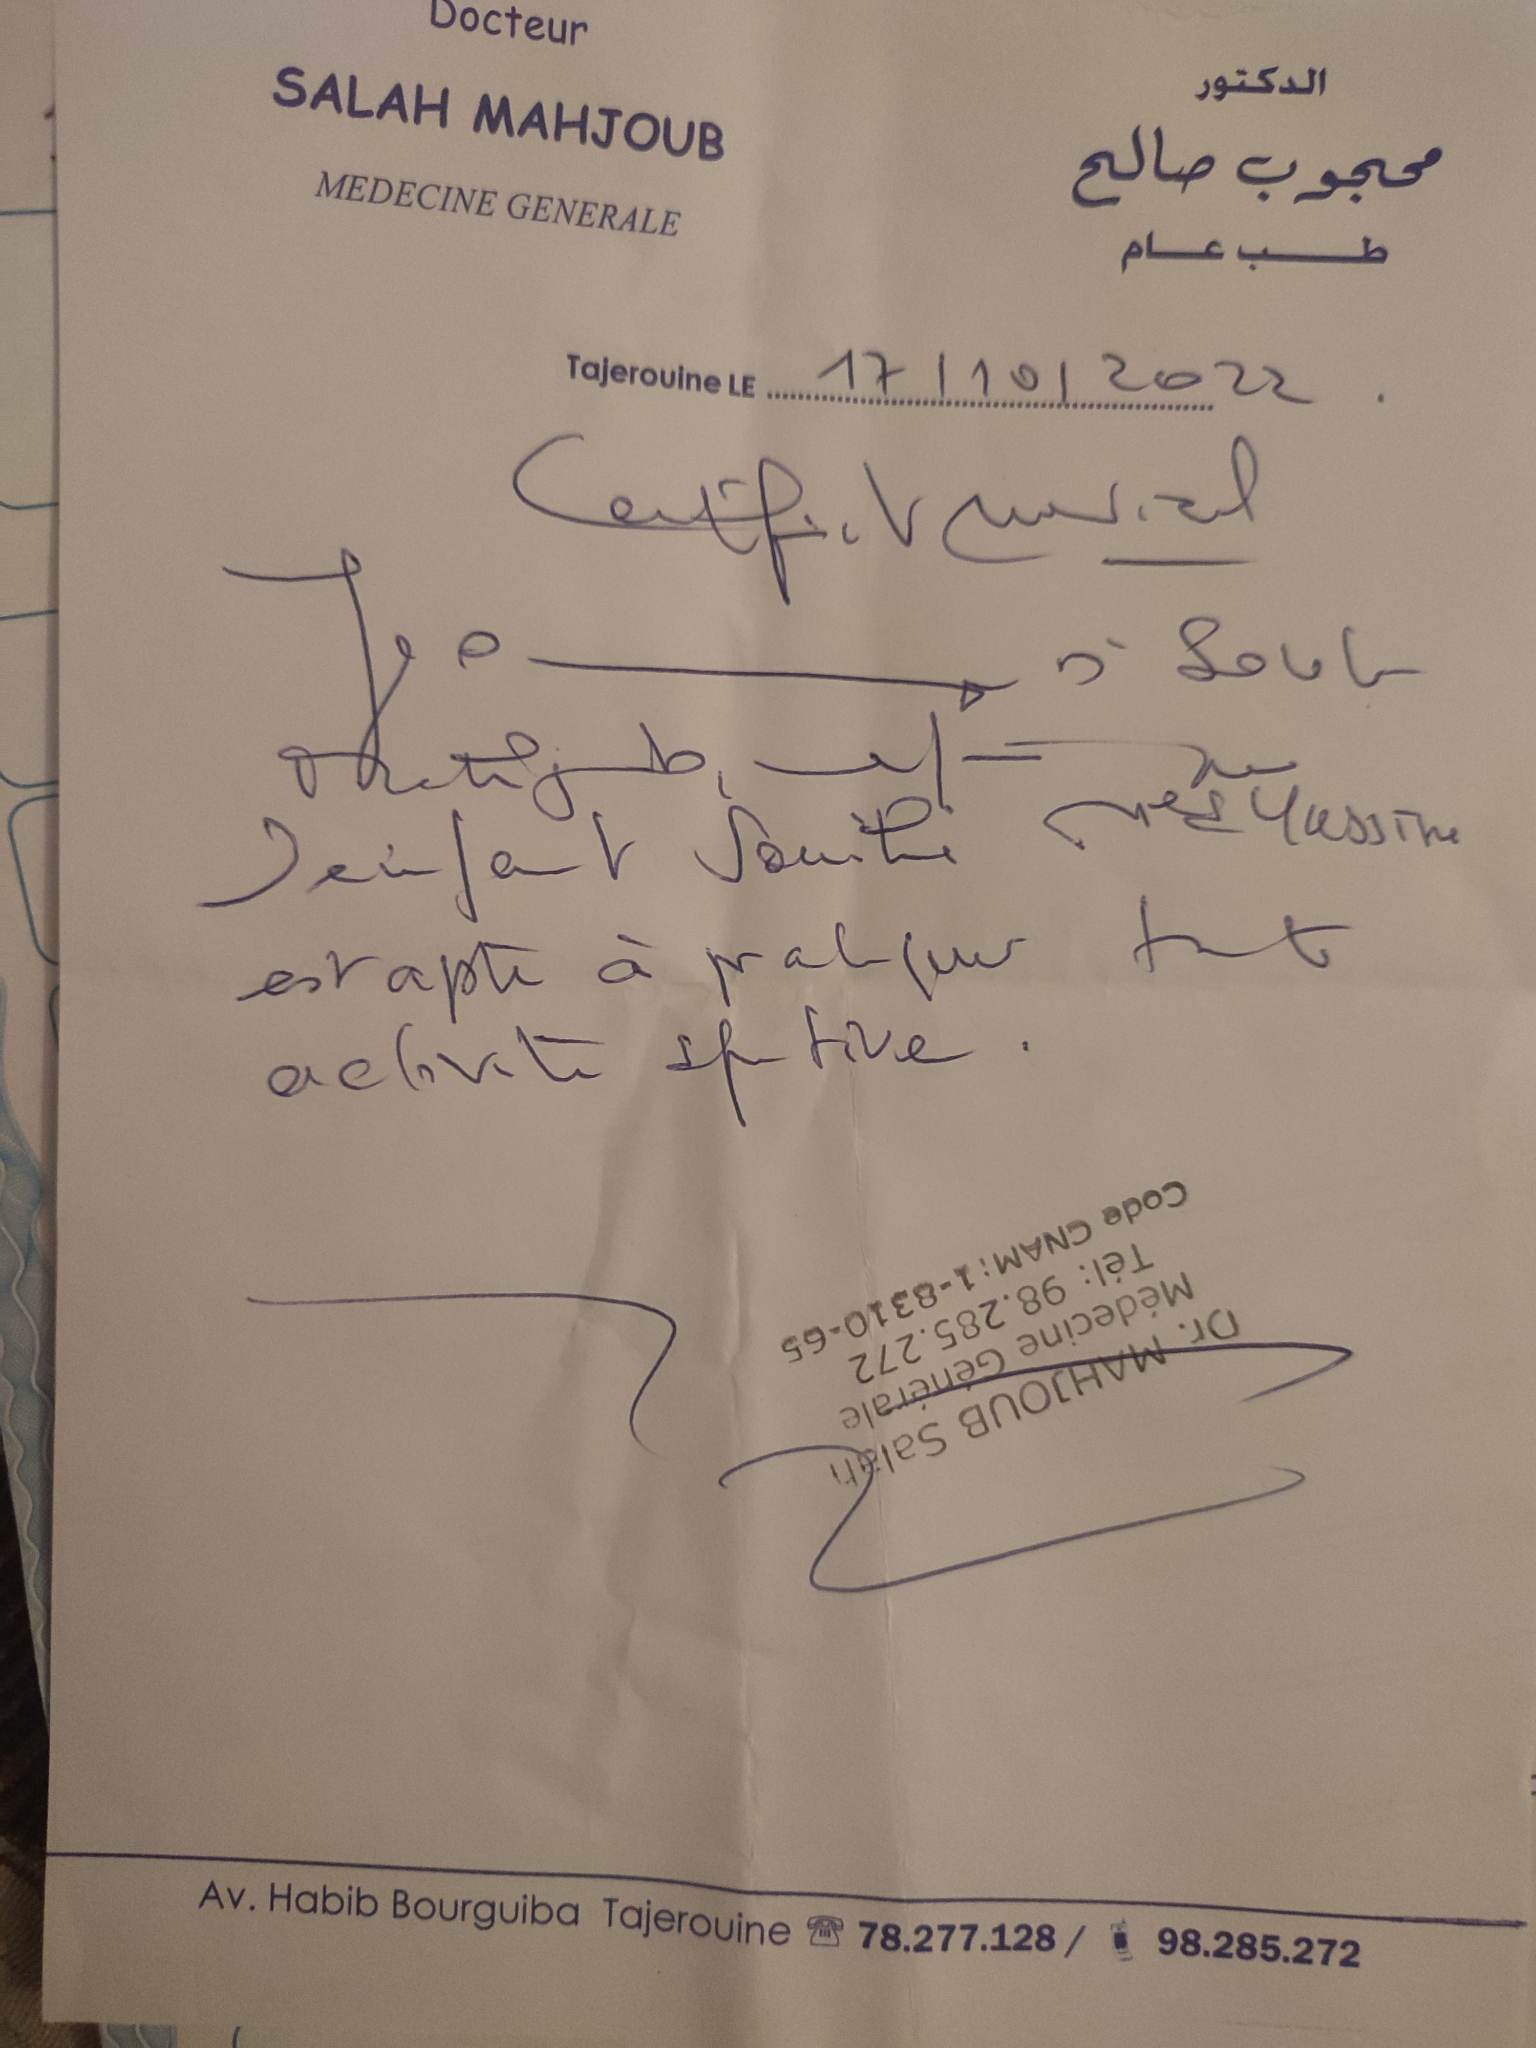 Docteur
SALAH MAHJOUB
MEDECINE GENERALE
الدكتور
محجوب صالح
طب عام
Tajerouine LE 17/10/2022
Certificat medical
Je Dr Salah
Mahjoub, que
l'enfant Med Yassine
est apte à pratiquer toute
activité sportive.
Code CNAM: 1-8310-65
Tél: 98.285.272
Médecine Générale
Dr. MAHJOUB Salah
Av. Habib Bourguiba Tajerouine 78.277.128 / 98.285.272